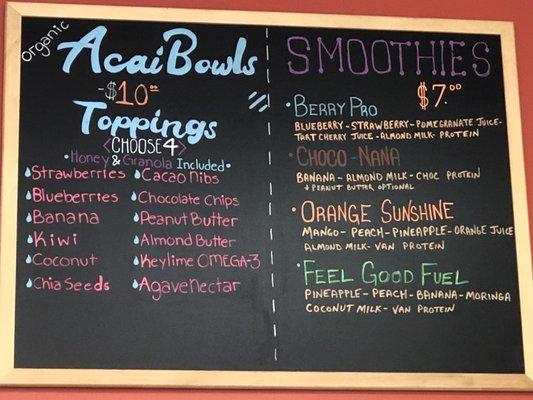 Organic
Acai Bowls
-$10.00
Toppings
<CHOOSE 4>
• Honey & Granola Included •
Strawberries
Blueberries
Banana
Kiwi
Coconut
Chia Seeds
Cacao Nibs
Chocolate Chips
Peanut Butter
Almond Butter
Keylime OMEGA-3
Agave nectar
SMOOTHIES
$7.00
• BERRY PRO
BLUEBERRY - STRAWBERRY - POMEGRANATE JUICE -
TART CHERRY JUICE - ALMOND MILK - PROTEIN
• CHOCO-NANA
BANANA - ALMOND MILK - CHOC PROTEIN
+ PEANUT BUTTER OPTIONAL
• ORANGE SUNSHINE
MANGO - PEACH - PINEAPPLE - ORANGE JUICE
ALMOND MILK - VAN PROTEIN
• FEEL GOOD FUEL
PINEAPPLE - PEACH - BANANA - MORINGA
COCONUT MILK - VAN PROTEIN